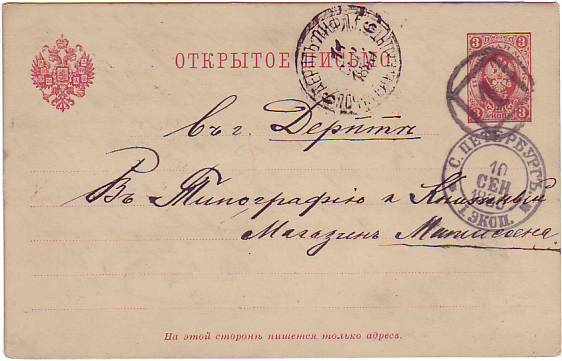 ОТКРЫТОЕ ПИСЬМО.
3 3
3 КОП. 3
С. ПЕТЕРБУРГЪ
10
СЕН
1 ЭКСП.
Въ г. Дерптъ
Въ Типографію и Книжный
Магазинъ Матисена
На этой сторонѣ пишется только адресъ.